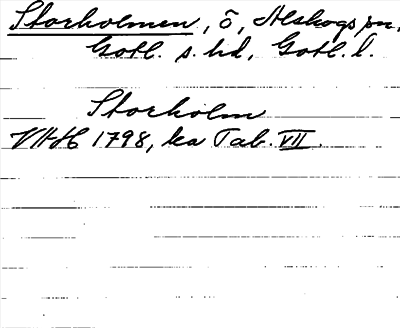 Storholmen, ö, Alskogs sn,
Gotl. s. hd, Gotl. l.
Storholm
VHAH 1798, ka Tab. VII.